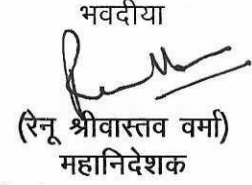 भवदीया
(रेनू श्रीवास्तव वर्मा)
महानिदेशक